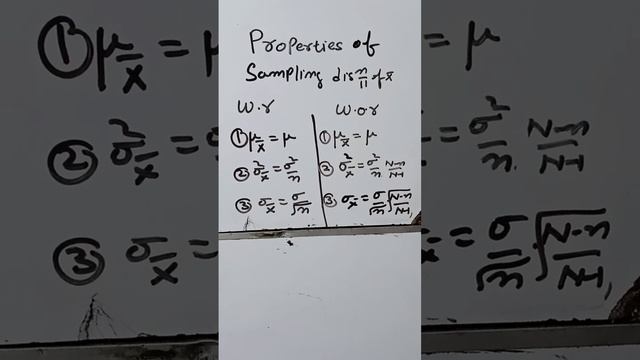 Properties of
Sampling dis n/11 of x̄
W.r
W.O.r
① μx̄ = μ
② σ²x̄ = σ²/n
③ σx̄ = σ/√n
① μx̄ = μ
② σ²x̄ = σ²/n N-n/N-1
③ σx̄ = σ/√n √N-n/N-1